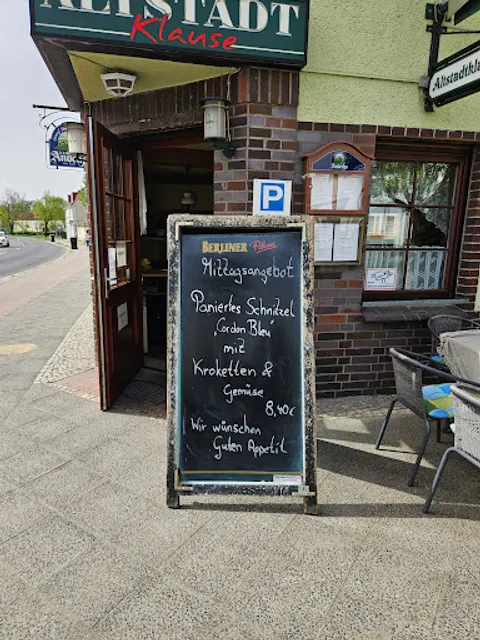 ALTSTADT
Klause
Altstadtkla
P
BERLINER Pilsner
Mittagsangebot
Paniertes Schnitzel
"Cordon Bleu"
mit
Kroketten &
Gemüse
8,40€
Wir wünschen
Guten Appetit